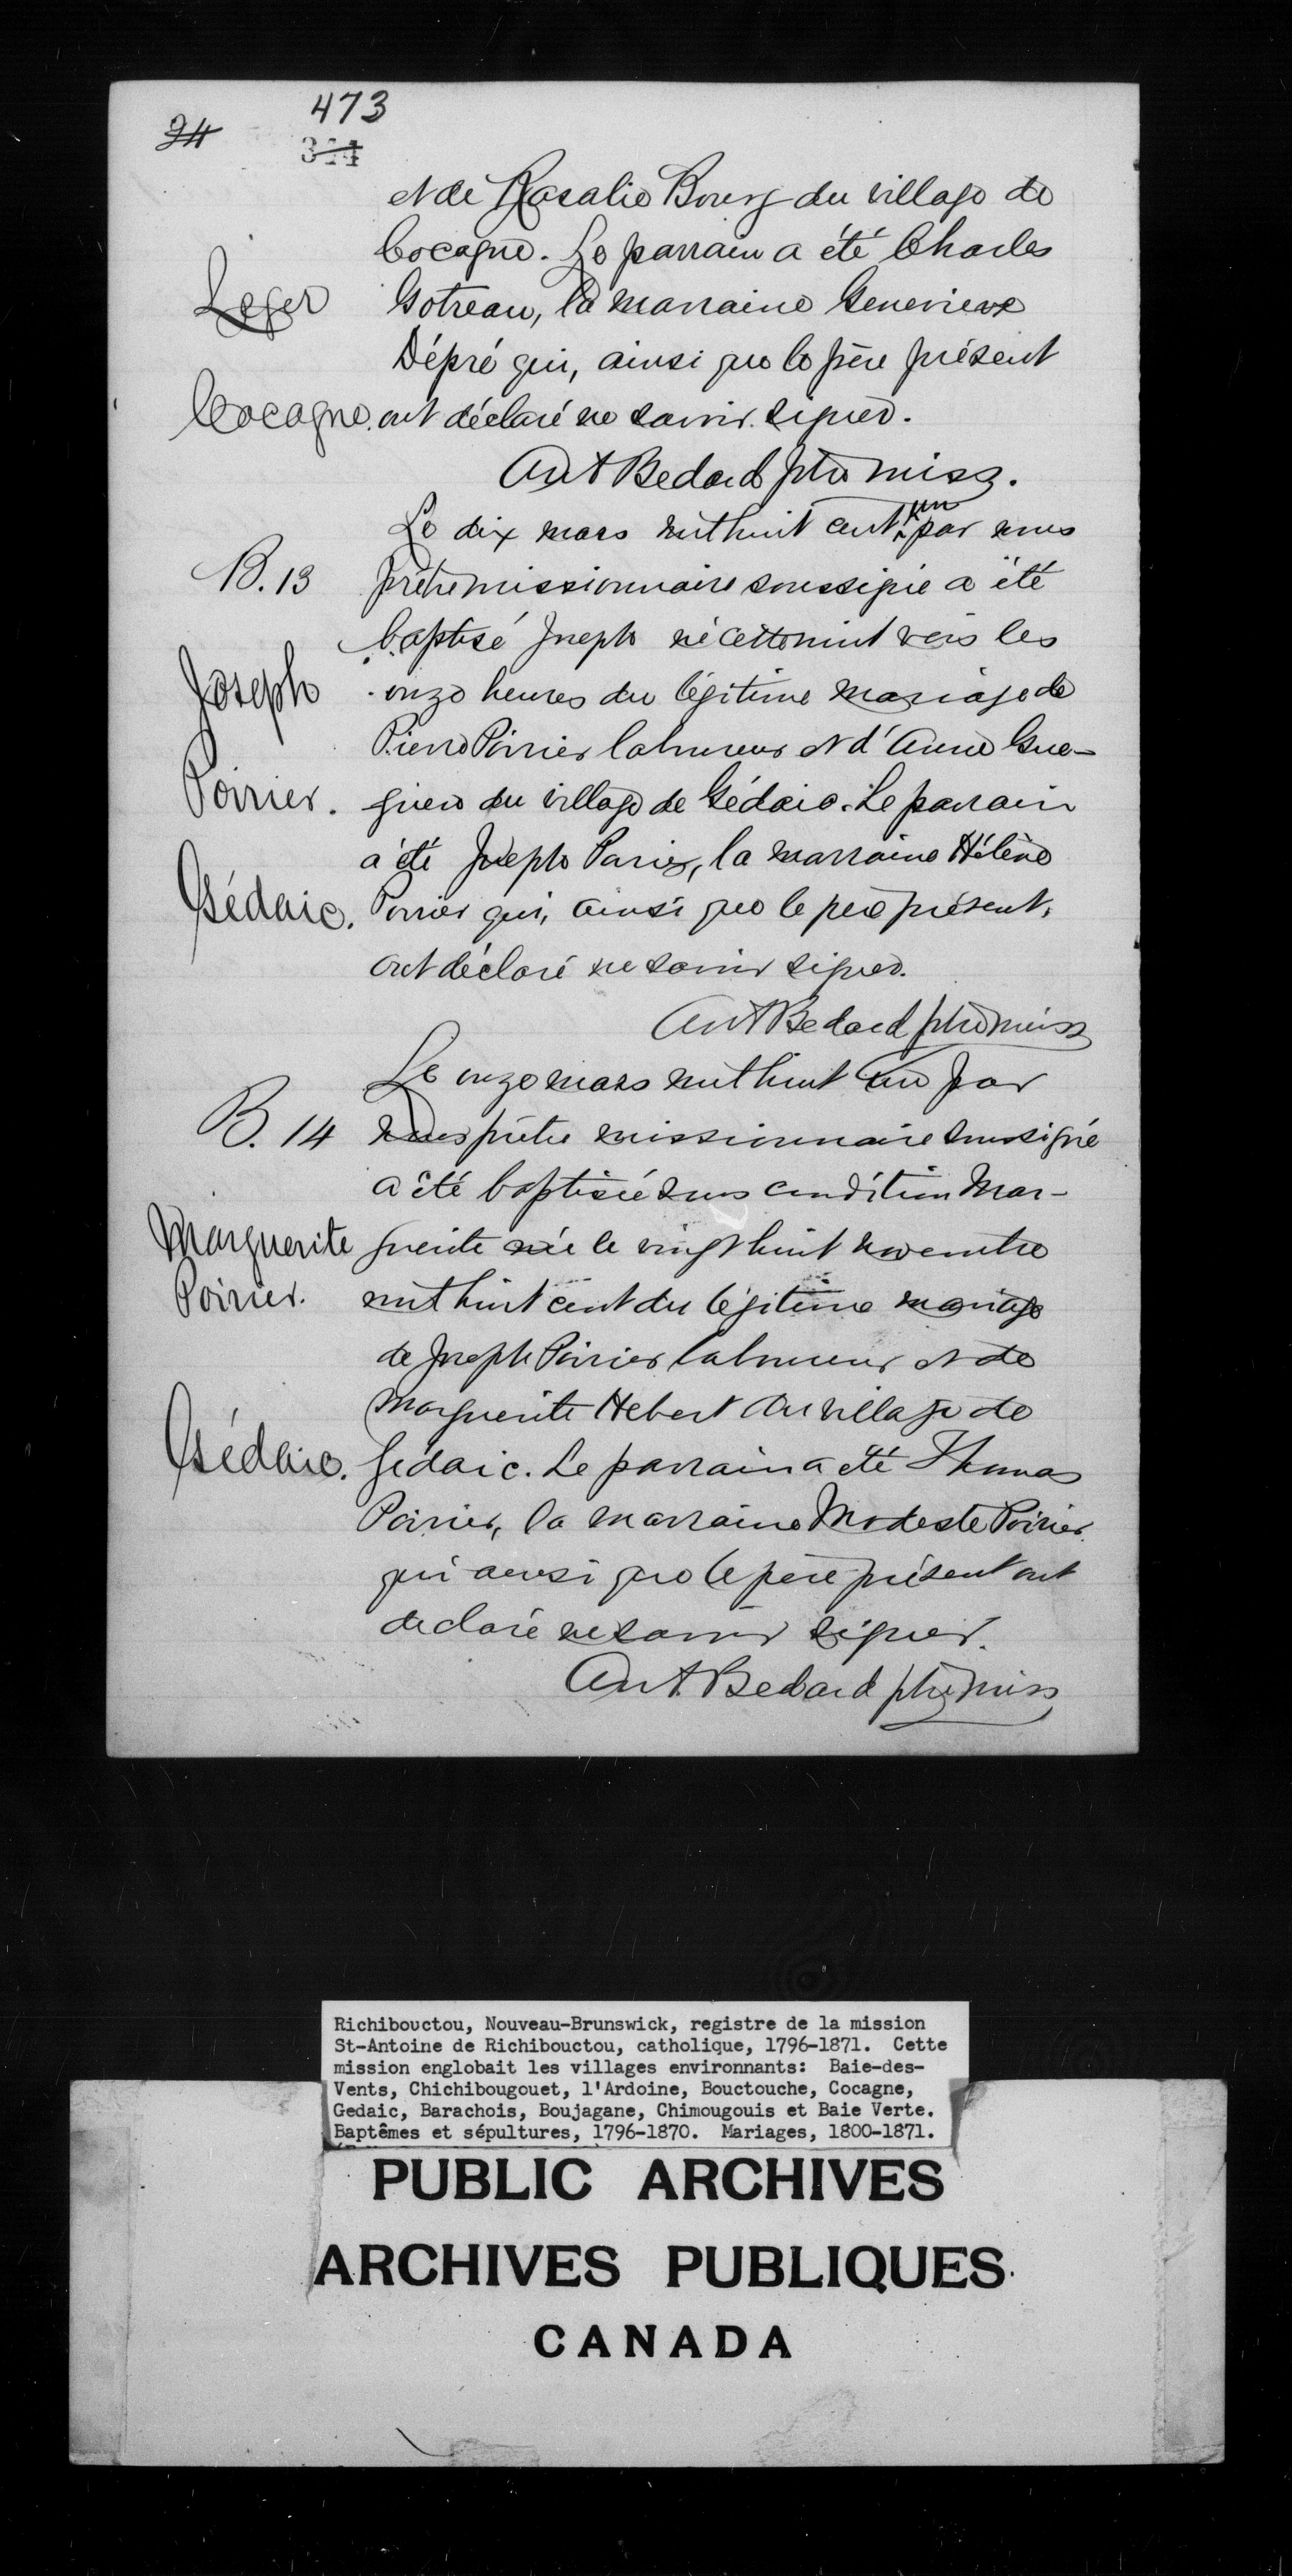 24
473
344
et de Rosalie Bourg du village de
Cocagne. Le parrain a été Charles
Leger
Gotreau, la marraine Genevieve
Dépré qui, ainsi que le père présent
Cocagne. ont déclaré ne savoir signer.
Ant Bedard ptre miss.
Le dix mars mil huit cent un par nous
B. 13
prêtre missionnaire soussigné a été
baptisé Joseph né cette nuit vers les
Joseph
onze heures du légitime mariage de
Pierre Poirier laboureur et d'Anne Gue-
Poirier.
guen du village de Gédaic. Le parrain
a été Joseph Parier, la marraine Hélène
Gédaic.
Poirier qui, ainsi que le père présent,
ont déclaré ne savoir signer.
Ant Bedard ptre miss
Le onze mars mil huit cent un par
B. 14
nous prêtre missionnaire soussigné
a été baptisée sous condition Mar-
Marguerite
guerite née le vingt huit novembre
Poirier.
mil huit cent du légitime mariage
de Joseph Poirier laboureur et de
Marguerite Hebert du village de
Gédaic.
Gedaic. Le parrain a été Thomas
Poirier, la marraine Modeste Poirier
qui ainsi que le père présent ont
declaré ne savoir signer.
Ant. Bedard ptre miss
Richibouctou, Nouveau-Brunswick, registre de la mission
St-Antoine de Richibouctou, catholique, 1796-1871. Cette
mission englobait les villages environnants: Baie-des-
Vents, Chichibougouet, l'Ardoine, Bouctouche, Cocagne,
Gedaic, Barachois, Boujagane, Chimougouis et Baie Verte.
Baptêmes et sépultures, 1796-1870. Mariages, 1800-1871.
PUBLIC ARCHIVES
ARCHIVES PUBLIQUES
CANADA